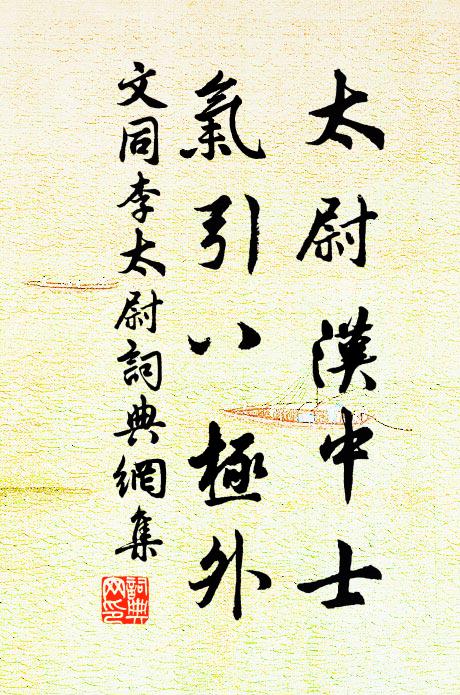 太尉漢中士
氣引八極外
文同李太尉詞典網集
詞典網印